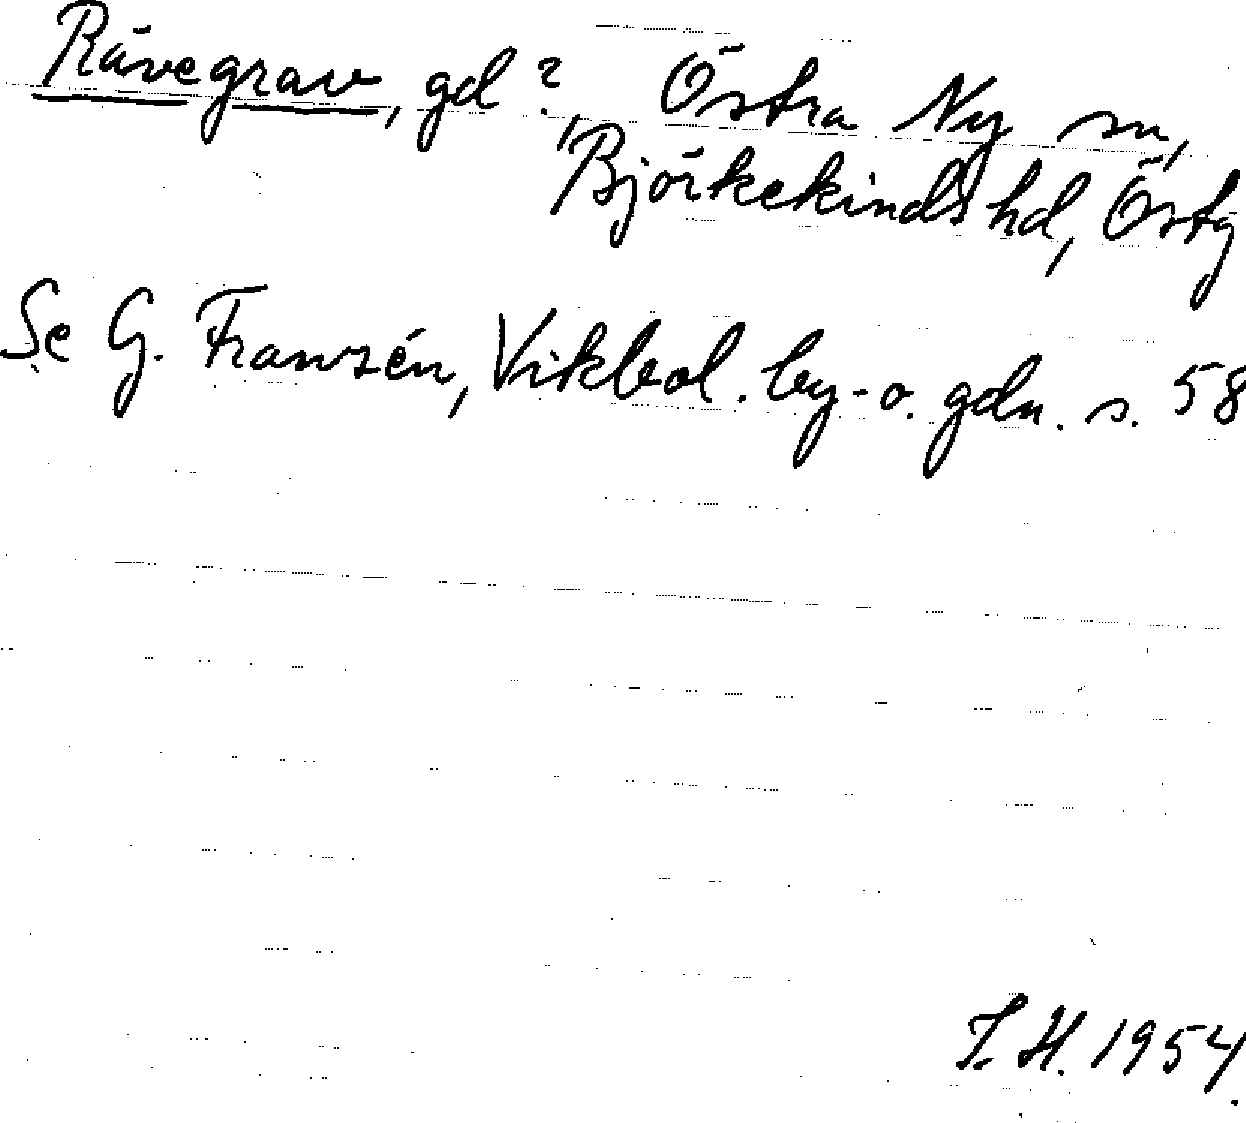 Rävegrav, gd?, Östra Ny sn,
Björkekinds hd, Östg
Se G. Franzén, Vikbol. by- o. gdn. s. 58
I. H. 1954.